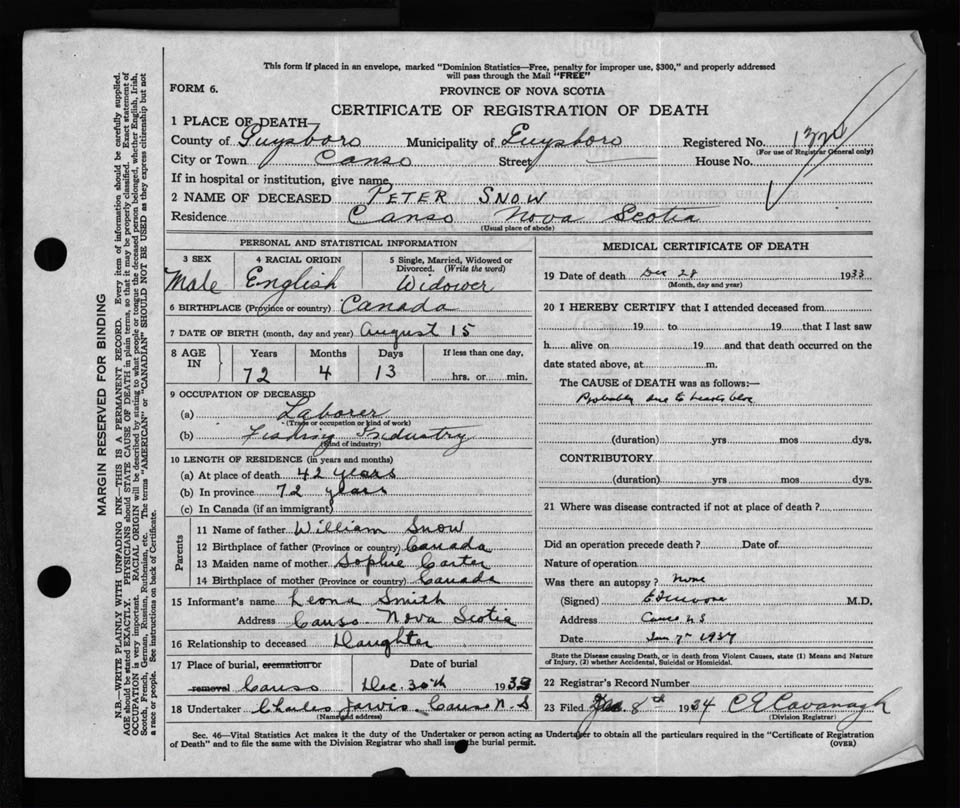 This form if placed in an envelope, marked "Dominion Statistics—Free, penalty for improper use, $300," and properly addressed
will pass through the Mail "FREE"
FORM 6.
PROVINCE OF NOVA SCOTIA
CERTIFICATE OF REGISTRATION OF DEATH
1 PLACE OF DEATH
County of Guysboro Municipality of Guysboro Registered No.
(For use of Registrar General only)
City or Town Canso Street House No.
If in hospital or institution, give name
2 NAME OF DECEASED PETER SNOW
Residence Canso Nova Scotia
(Usual place of abode)
PERSONAL AND STATISTICAL INFORMATION
3 SEX 4 RACIAL ORIGIN 5 Single, Married, Widowed or
Divorced. (Write the word)
Male English Widower
6 BIRTHPLACE (Province or country) Canada
7 DATE OF BIRTH (month, day and year) August 15
8 AGE IN Years Months Days If less than one day,
72 4 13 hrs. or min.
9 OCCUPATION OF DECEASED
(a) Laborer
(Trade or occupation or kind of work)
(b) Industry
(Kind of industry)
10 LENGTH OF RESIDENCE (in years and months)
(a) At place of death 42 years
(b) In province 72 years
(c) In Canada (if an immigrant)
Parents
11 Name of father William Snow
12 Birthplace of father (Province or country) Canada
13 Maiden name of mother Sophie Carter
14 Birthplace of mother (Province or country) Canada
15 Informant's name Leona Smith
Address Canso Nova Scotia
16 Relationship to deceased Daughter
17 Place of burial, cremation or Date of burial
removal Canso Dec. 30th 1933
18 Undertaker Charles Jarvis Canso N.S
(Name and address)
MEDICAL CERTIFICATE OF DEATH
19 Date of death Dec 28 1933
(Month, day and year)
20 I HEREBY CERTIFY that I attended deceased from
19 to 19 that I last saw
h alive on 19 and that death occurred on the
date stated above, at m.
The CAUSE of DEATH was as follows:—
Probably due to heart
(duration) yrs mos dys.
CONTRIBUTORY
(duration) yrs mos dys.
21 Where was disease contracted if not at place of death?
Did an operation precede death? Date of
Nature of operation
Was there an autopsy? none
(Signed) M.D.
Address Canso N S
Date Jan 7th 1934
State the Disease causing Death, or in death from Violent Causes, state (1) Means and Nature
of Injury, (2) whether Accidental, Suicidal or Homicidal.
22 Registrar's Record Number
23 Filed Jan 8th 1934 C A Cavanagh
(Division Registrar)
Sec. 46—Vital Statistics Act makes it the duty of the Undertaker or person acting as Undertaker to obtain all the particulars required in the "Certificate of Registration
of Death" and to file the same with the Division Registrar who shall issue the burial permit.
(OVER)
MARGIN RESERVED FOR BINDING
N.B.—WRITE PLAINLY WITH UNFADING INK—THIS IS A PERMANENT RECORD. Every item of information should be carefully supplied.
AGE should be stated EXACTLY. PHYSICIANS should STATE CAUSE OF DEATH in plain terms, so that it may be properly classified. Exact statement of
OCCUPATION is very important. RACIAL ORIGIN will be described by stating to what people or tongue the deceased person belonged, whether English, Irish,
Scotch, French, German, Russian, Ruthenian, etc. The terms "AMERICAN" or "CANADIAN" SHOULD NOT BE USED as they express citizenship but not
a race or people. See instructions on back of Certificate.